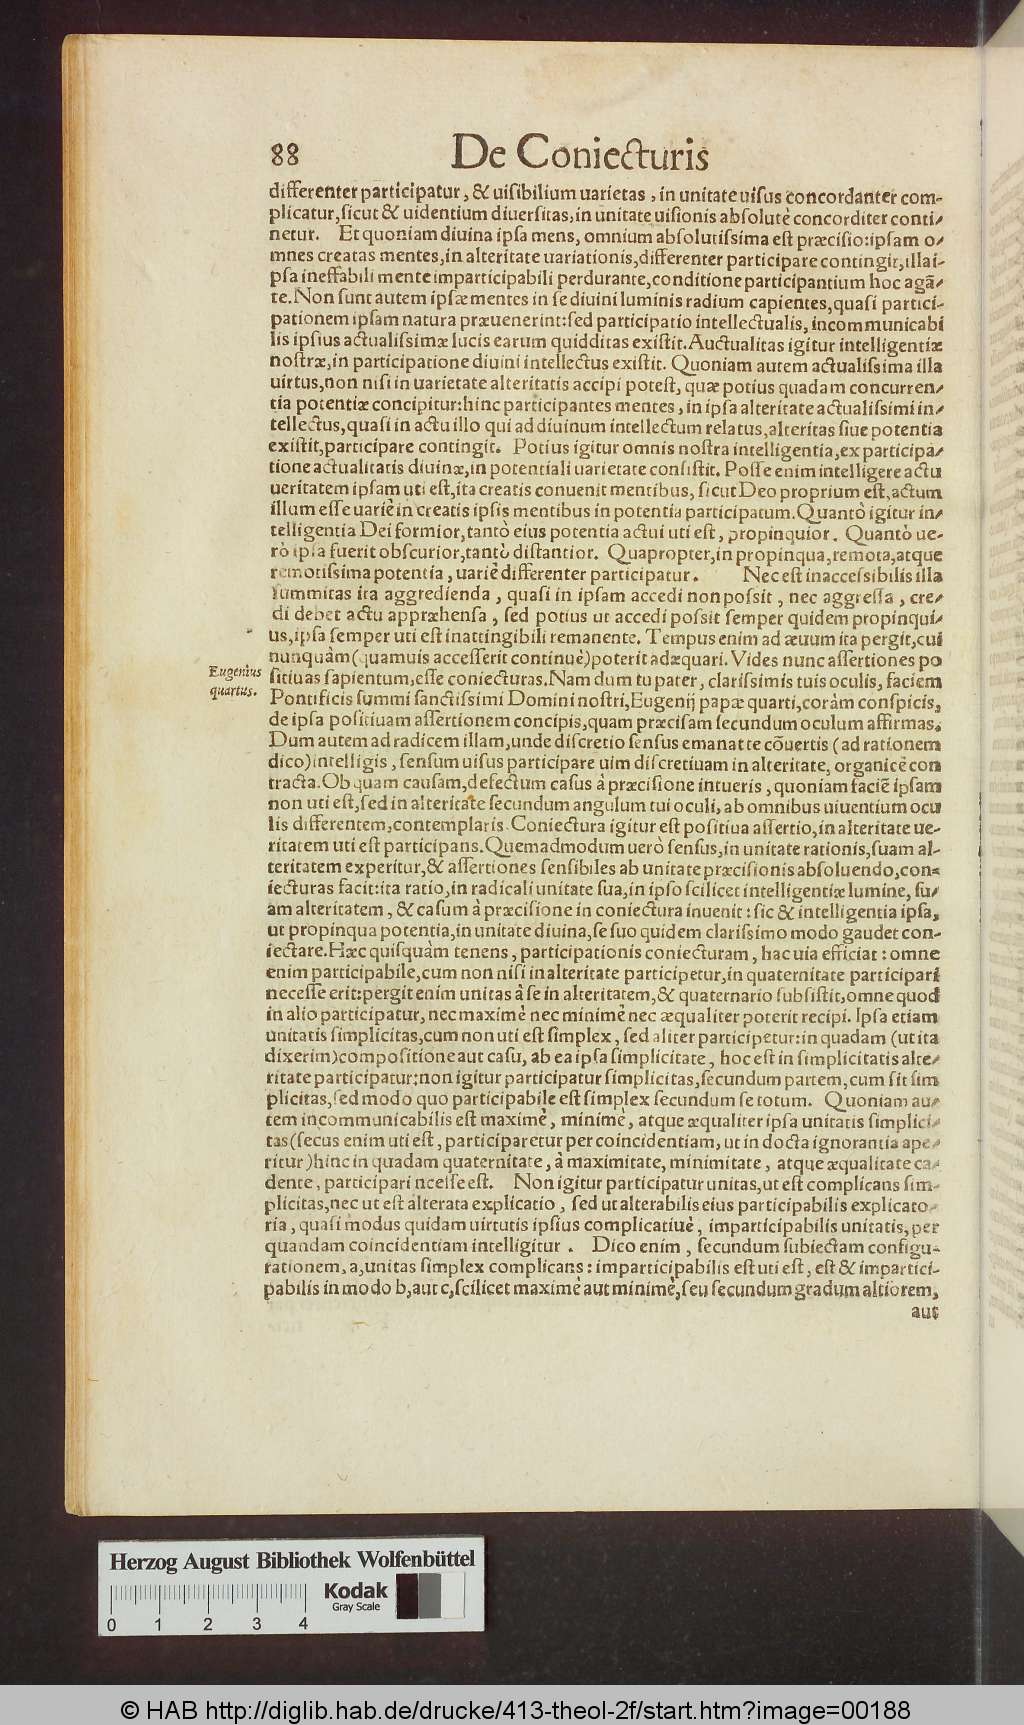 88 De Coniecturis
differenter participatur, & uisibilium uarietas, in unitate uisus concordanter com-
plicatur, sicut & uidentium diuersitas, in unitate uisionis absolutè concorditer conti-
netur. Et quoniam diuina ipsa mens, omnium absolutissima est præcisio: ipsam o-
mnes creatas mentes, in alteritate uariationis, differenter participare contingit, illa i-
psa ineffabili mente imparticipabili perdurante, conditione participantium hoc agã-
te. Non sunt autem ipsæ mentes in se diuini luminis radium capientes, quasi partici-
pationem ipsam natura præuenerint: sed participatio intellectualis, incommunicabi
lis ipsius actualissimæ lucis earum quidditas existit. Auctualitas igitur intelligentiæ
nostræ, in participatione diuini intellectus existit. Quoniam autem actualissima illa
uirtus, non nisi in uarietate alteritatis accipi potest, quæ potius quadam concurren-
tia potentiæ concipitur: hinc participantes mentes, in ipsa alteritate actualissimi in-
tellectus, quasi in actu illo qui ad diuinum intellectum relatus, alteritas siue potentia
existit, participare contingit. Potius igitur omnis nostra intelligentia, ex participa-
tione actualitatis diuinæ, in potentiali uarietate consistit. Posse enim intelligere actu
ueritatem ipsam uti est, ita creatis conuenit mentibus, sicut Deo proprium est, actum
illum esse uariè in creatis ipsis mentibus in potentia participatum. Quantò igitur in-
telligentia Dei formior, tantò eius potentia actui uti est, propinquior. Quantò ue-
rò ipsa fuerit obscurior, tantò distantior. Quapropter, in propinqua, remota, atque
remotissima potentia, uariè differenter participatur. Nec est inaccessibilis illa
summitas ita aggredienda, quasi in ipsam accedi non possit, nec aggressa, cre-
di debet actu appræhensa, sed potius ut accedi possit semper quidem propinqui-
us, ipsa semper uti est inattingibili remanente. Tempus enim ad æuum ita pergit, cui
nunquàm (quamuis accesserit continuè) poterit adæquari. Vides nunc assertiones po
Eugenius
quartus.
sitiuas sapientum, esse coniecturas. Nam dum tu pater, clarissimis tuis oculis, faciem
Pontificis summi sanctissimi Domini nostri, Eugenij papæ quarti, coràm conspicis,
de ipsa positiuam assertionem concipis, quam præcisam secundum oculum affirmas.
Dum autem ad radicem illam, unde discretio sensus emanat te cõuertis (ad rationem
dico) intelligis, sensum uisus participare uim discretiuam in alteritate, organicè con
tracta. Ob quam causam, defectum casus à præcisione intueris, quoniam faciẽ ipsam
non uti est, sed in alteritate secundum angulum tui oculi, ab omnibus uiuentium ocu
lis differentem, contemplaris. Coniectura igitur est positiua assertio, in alteritate ue-
ritatem uti est participans. Quemadmodum uerò sensus, in unitate rationis, suam al-
teritatem experitur, & assertiones sensibiles ab unitate præcisionis absoluendo, con-
iecturas facit: ita ratio, in radicali unitate sua, in ipso scilicet intelligentiæ lumine, su-
am alteritatem, & casum à præcisione in coniectura inuenit: sic & intelligentia ipsa,
ut propinqua potentia, in unitate diuina, se suo quidem clarissimo modo gaudet con-
iectare. Hæc quisquàm tenens, participationis coniecturam, hac uia efficiat: omne
enim participabile, cum non nisi in alteritate participetur, in quaternitate participari
necesse erit: pergit enim unitas à se in alteritatem, & quaternario subsistit, omne quod
in alio participatur, nec maximè nec minimè nec æqualiter poterit recipi. Ipsa etiam
unitatis simplicitas, cum non uti est simplex, sed aliter participetur: in quadam (ut ita
dixerim) compositione aut casu, ab ea ipsa simplicitate, hoc est in simplicitatis alte-
ritate participatur: non igitur participatur simplicitas, secundum partem, cum sit sim
plicitas, sed modo quo participabile est simplex secundum se totum. Quoniam au-
tem incommunicabilis est maximè, minimè, atque æqualiter ipsa unitatis simplici-
tas (secus enim uti est, participaretur per coincidentiam, ut in docta ignorantia ape-
ritur) hinc in quadam quaternitate, à maximitate, minimitate, atque æqualitate ca-
dente, participari ncesse est. Non igitur participatur unitas, ut est complicans sim-
plicitas, nec ut est alterata explicatio, sed ut alterabilis eius participabilis explicato-
ria, quasi modus quidam uirtutis ipsius complicatiuè, imparticipabilis unitatis, per
quandam coincidentiam intelligitur. Dico enim, secundum subiectam configu-
rationem, a, unitas simplex complicans: imparticipabilis est uti est, est & impartici-
pabilis in modo b, aut c, scilicet maximè aut minimè, seu secundum gradum altiorem,
aut
Herzog August Bibliothek Wolfenbüttel
Kodak
Gray Scale
0 1 2 3 4
© HAB http://diglib.hab.de/drucke/413-theol-2f/start.htm?image=00188